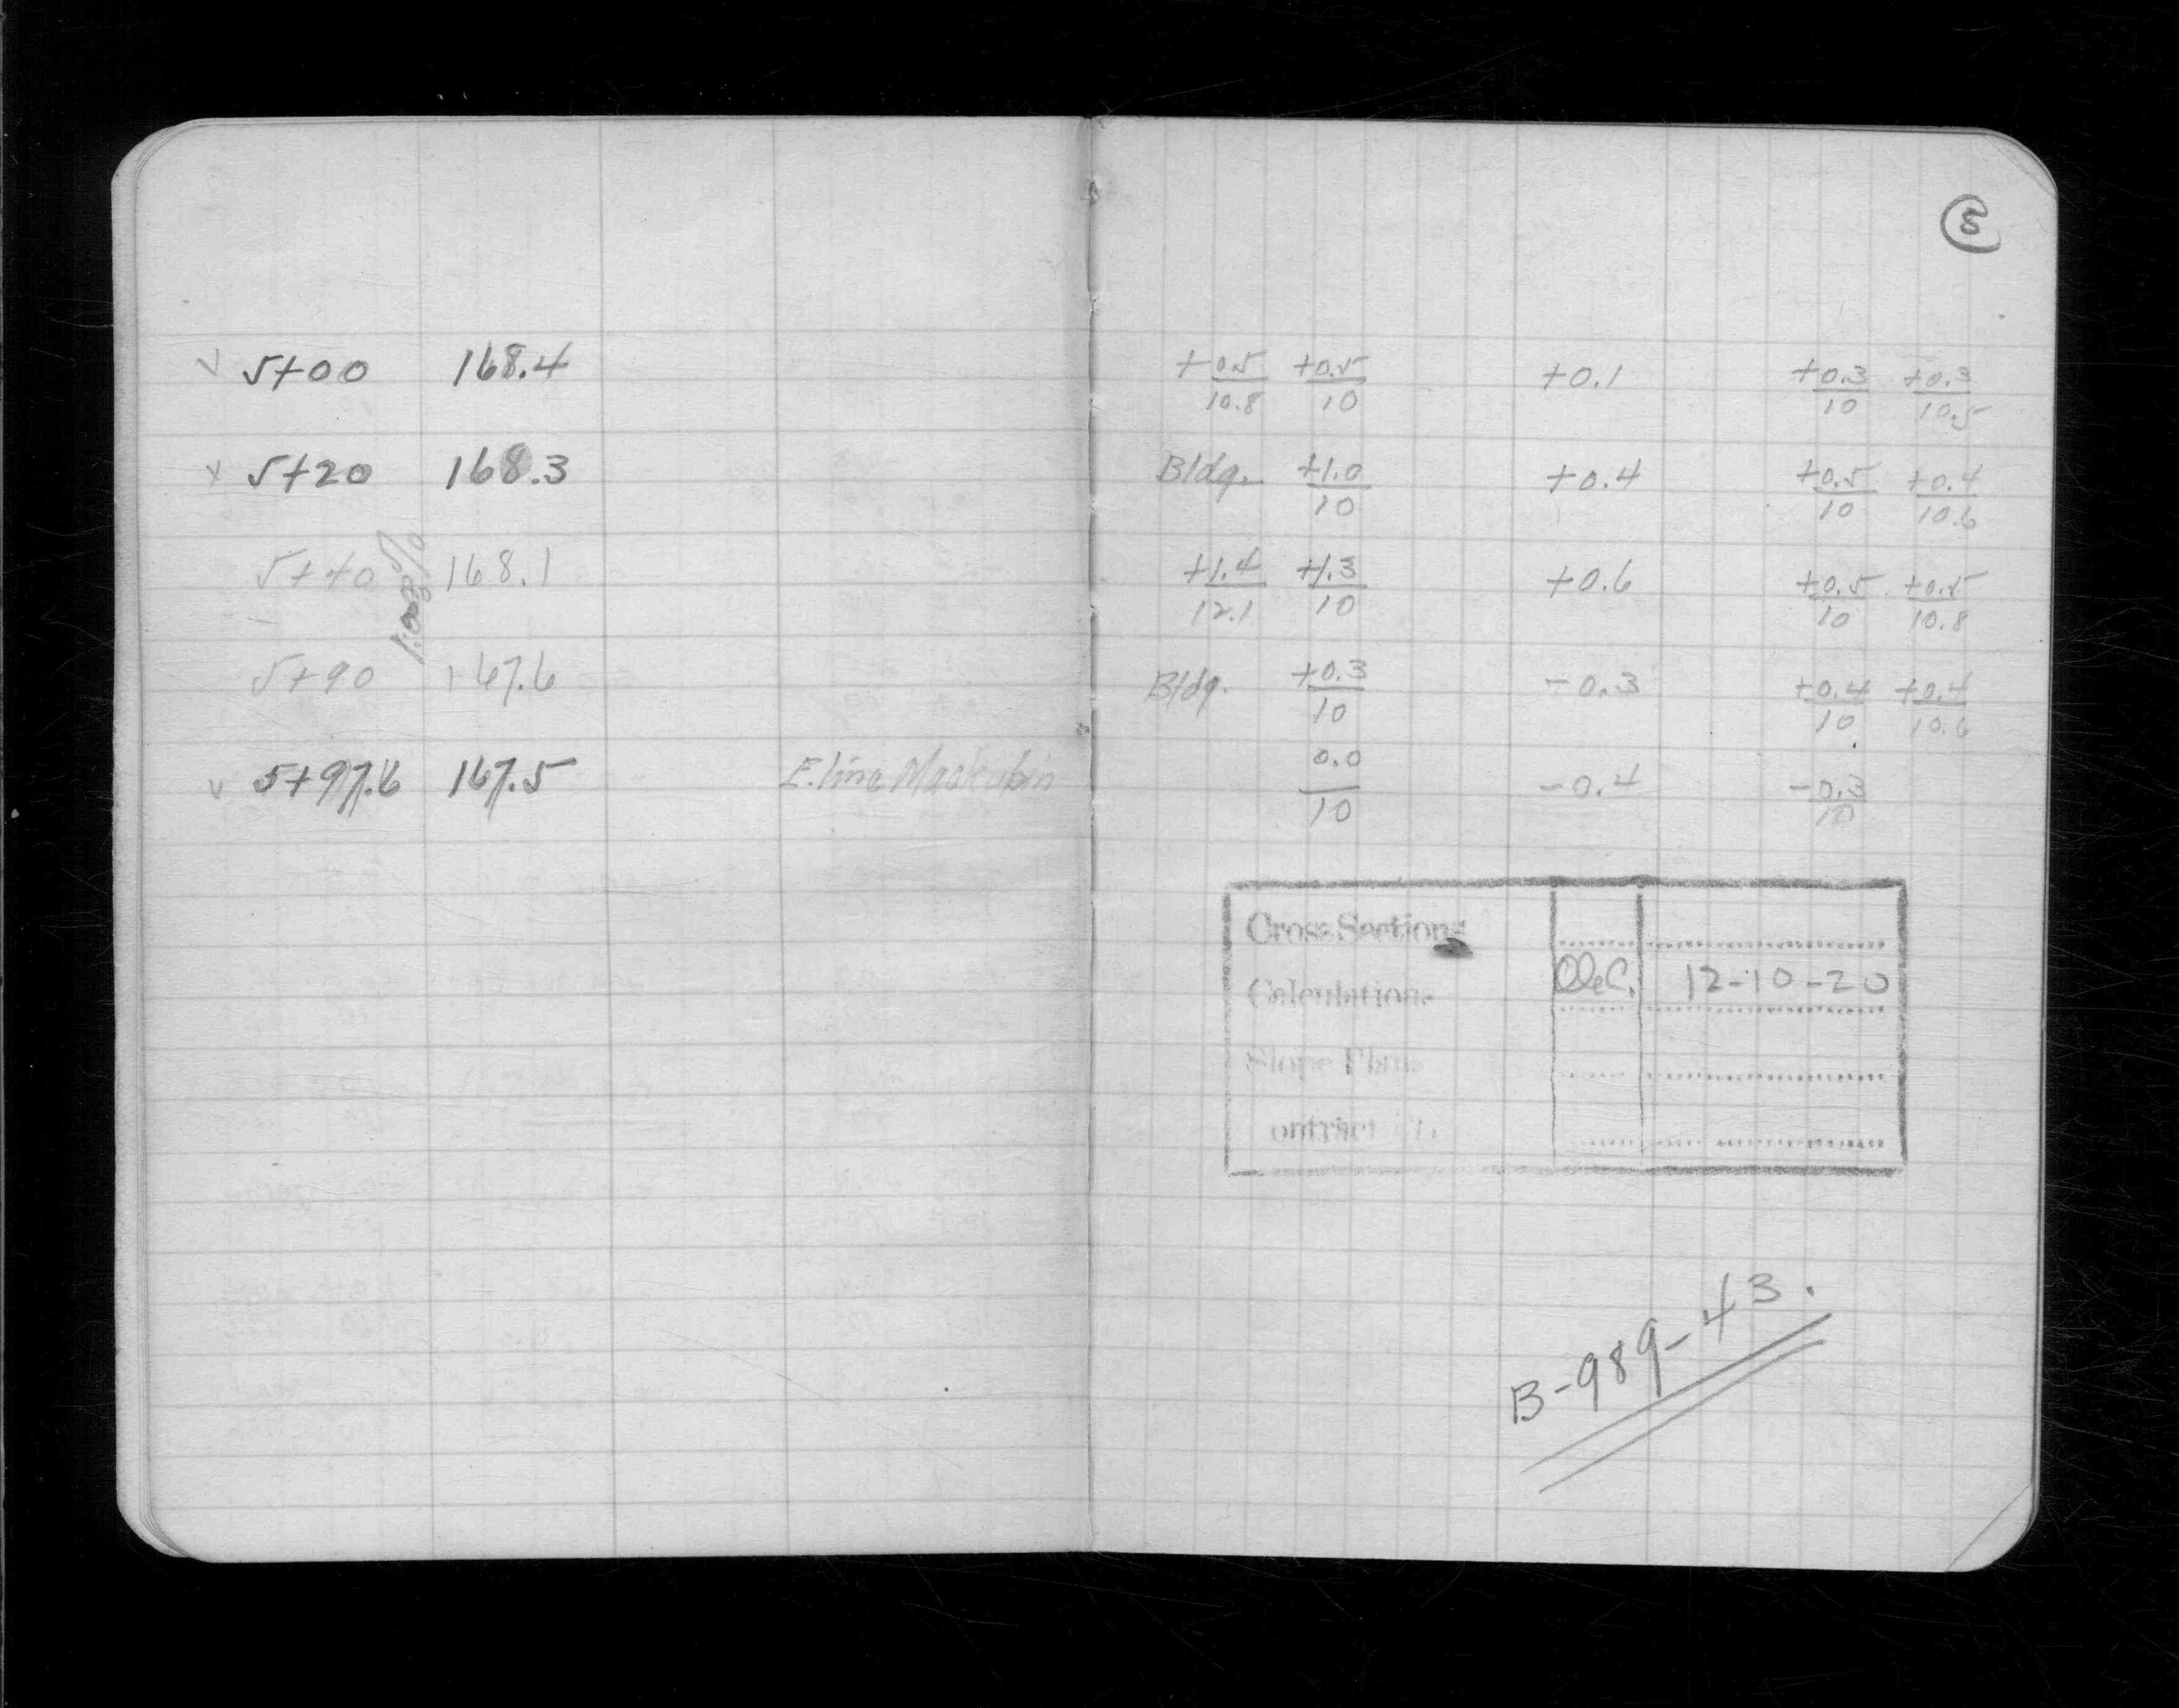 8
√ 5+00 168.4 +0.5/10.8 +0.5/10 +0.1 +0.3/10 +0.3/10.5
√ 5+20 168.3 Bldg. +1.0/10 +0.4 +0.5/10 +0.4/10.6
5+40 168.1 +1.4/12.1 +1.3/10 +0.6 +0.5/10 +0.5/10.8
5+90 167.6 Bldg. +0.3/10 -0.3 +0.4/10 +0.4/10.6
√ 5+97.6 167.5 E. line 0.0/10 -0.4 -0.3/10
Cross Sections
Calculations 12-10-20
Slope Plans
ontract
B-989-43.